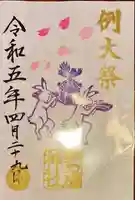 例大祭
令和五年四月二十九日